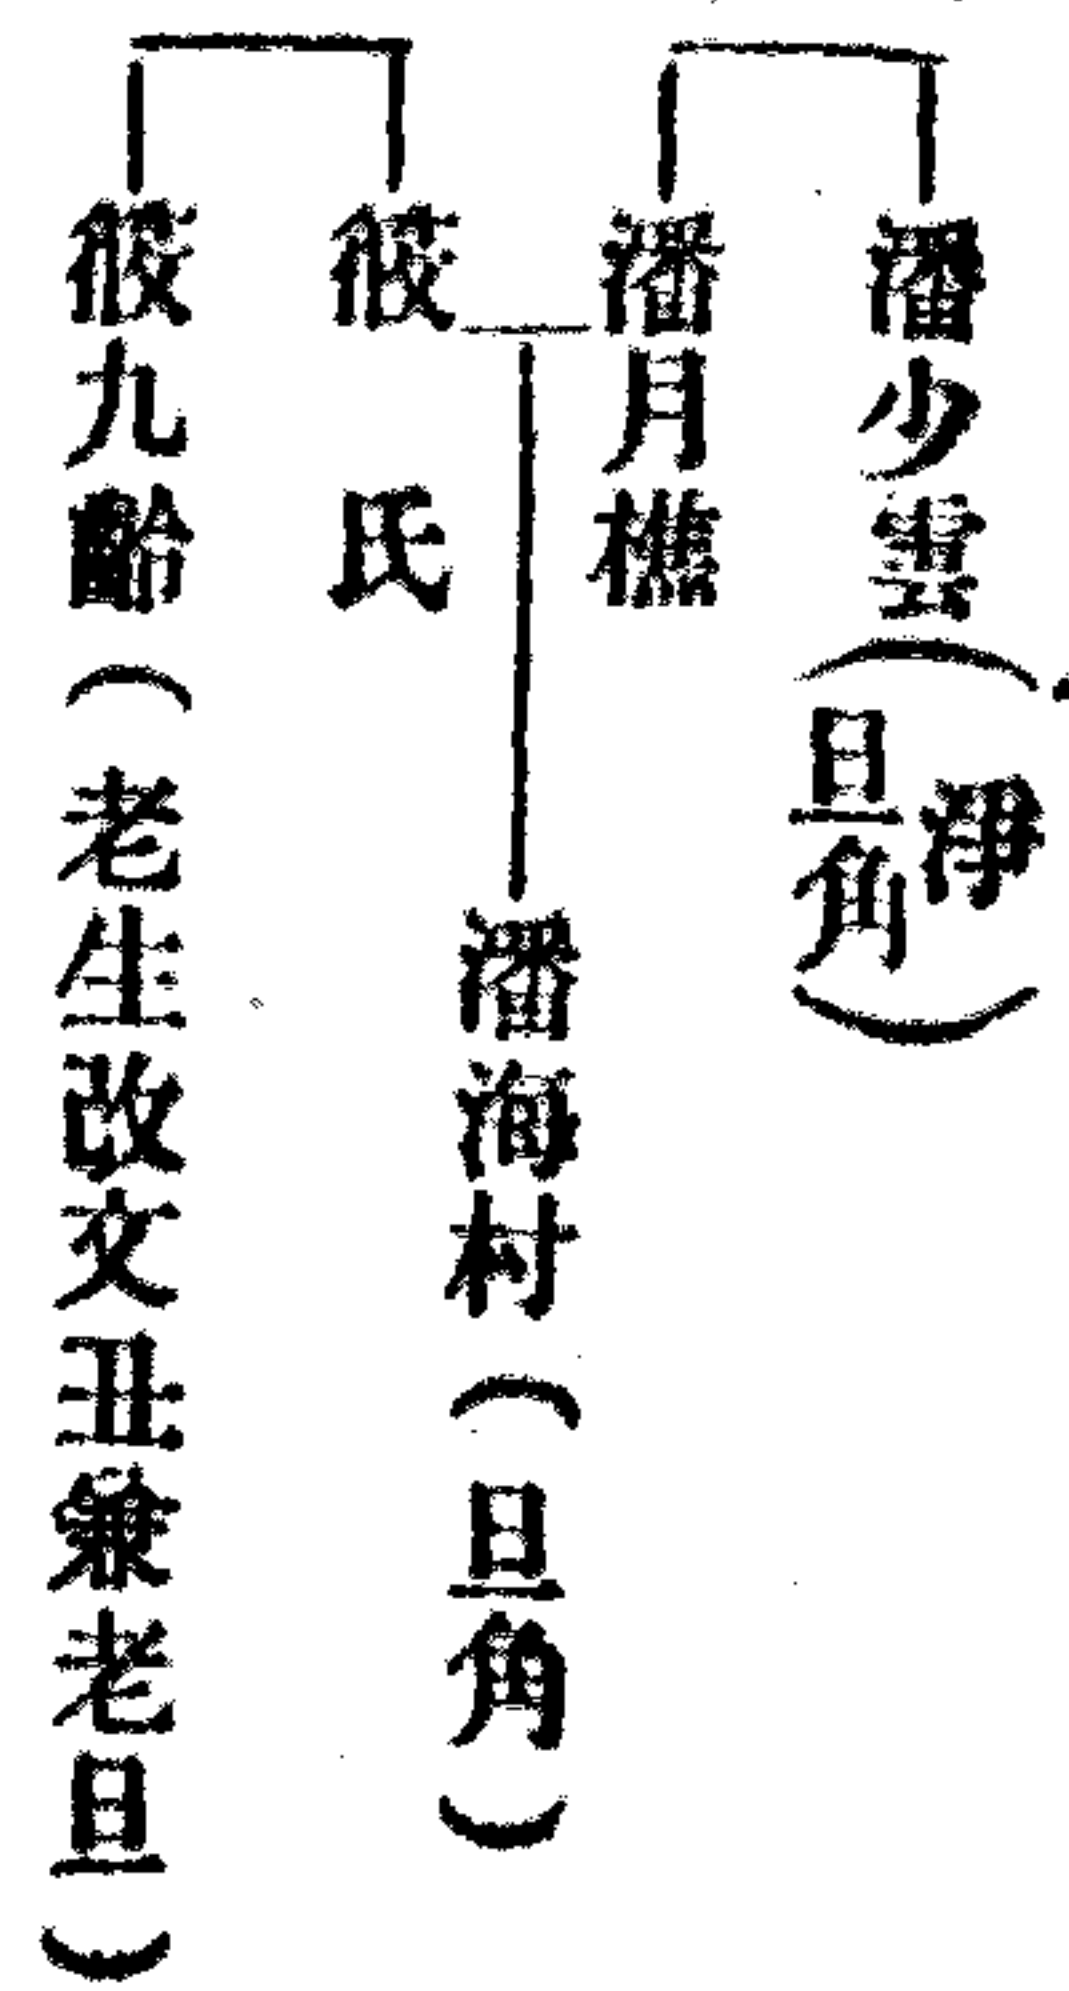 潘少雲(淨旦角)
潘月樵
潘海村(旦角)
氏
九齡(老生改文丑兼老旦)